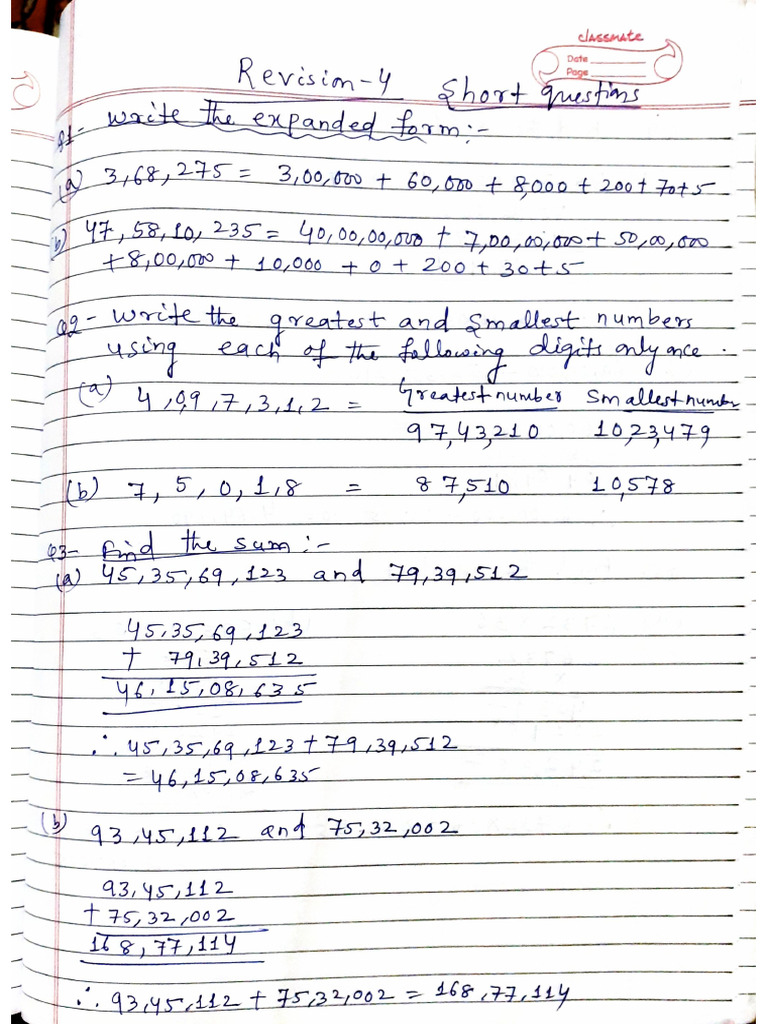 classmate
Date
Page
Revision-4 Short questions
Q1- Write the expanded form:-
(a) 3,68,275 = 3,00,000 + 60,000 + 8,000 + 200 + 70+5
(b) 47,58,10,235 = 40,00,00,000 + 7,00,00,000 + 50,00,000
+8,00,000 + 10,000 + 0 + 200 + 30+5
Q2- Write the greatest and smallest numbers
using each of the following digits only once.
(a) 4,0,9,7,3,1,2 = Greatest number Smallest number
97,43,210 10,23,479
(b) 7, 5, 0, 1, 8 = 87,510 10,578
Q3- Find the sum:-
(a) 45,35,69,123 and 79,39,512
45,35,69,123
+ 79,39,512
46,15,08,635
∴ 45,35,69,123 + 79,39,512
= 46,15,08,635
(b) 93,45,112 and 75,32,002
93,45,112
+ 75,32,002
168,77,114
∴ 93,45,112 + 75,32,002 = 168,77,114